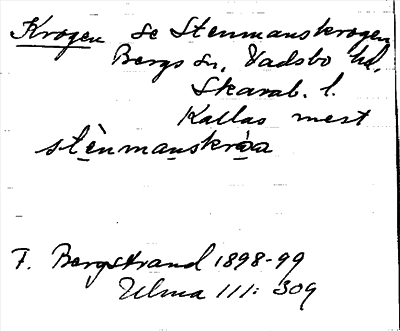 Krogen se Stenmanskrogen
Bergs sn, Vadsbo hd,
Skarab. l.
Kallas mest
stènmanskråa
F. Bergstrand 1898-99
Ulma 111: 309